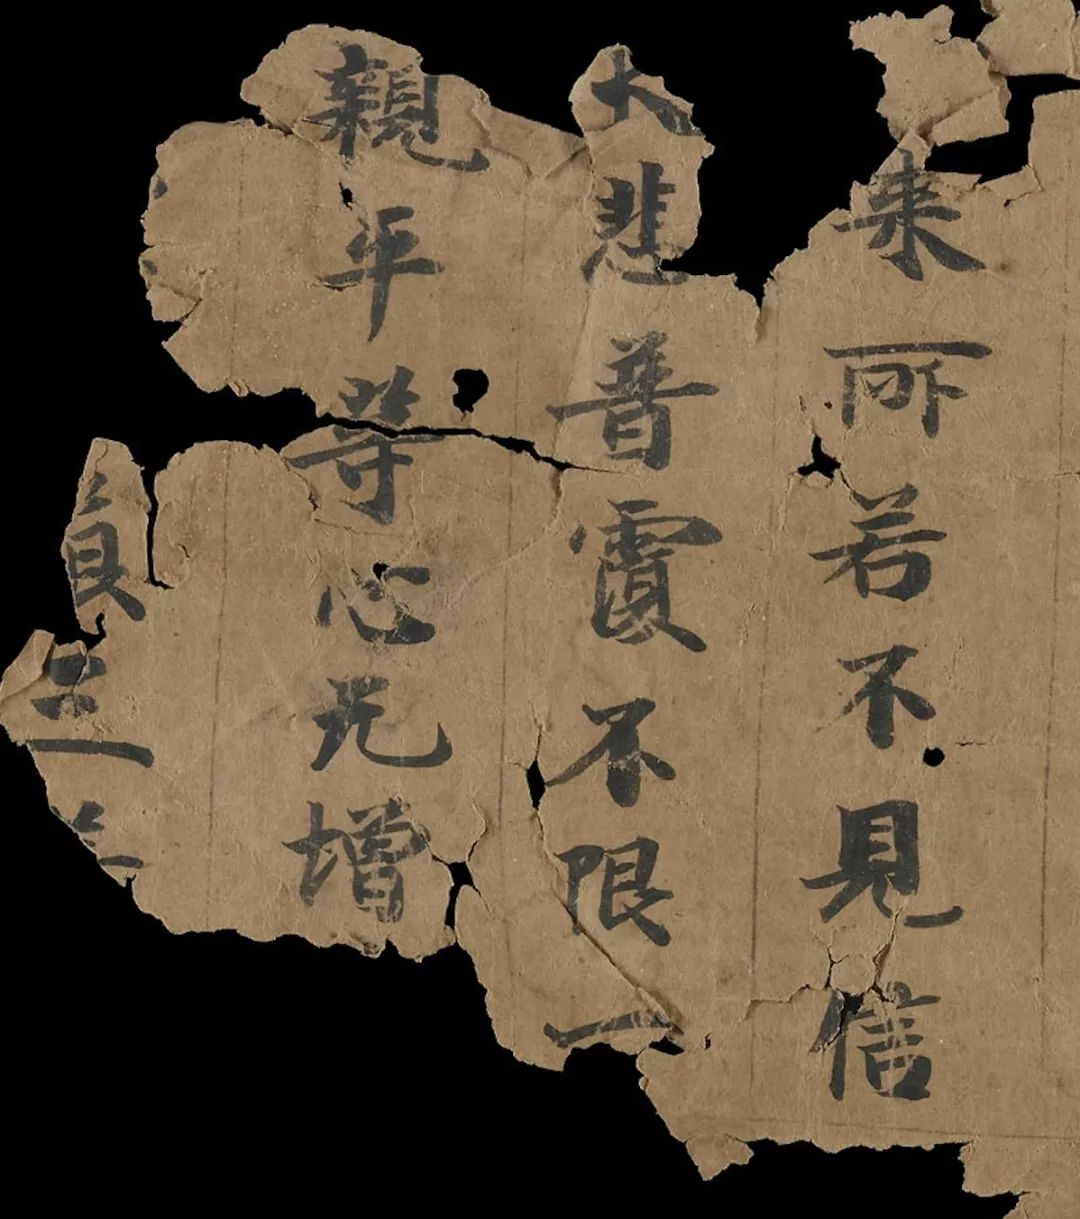 来所若不見信
大悲普覆不限一
親平等心无增